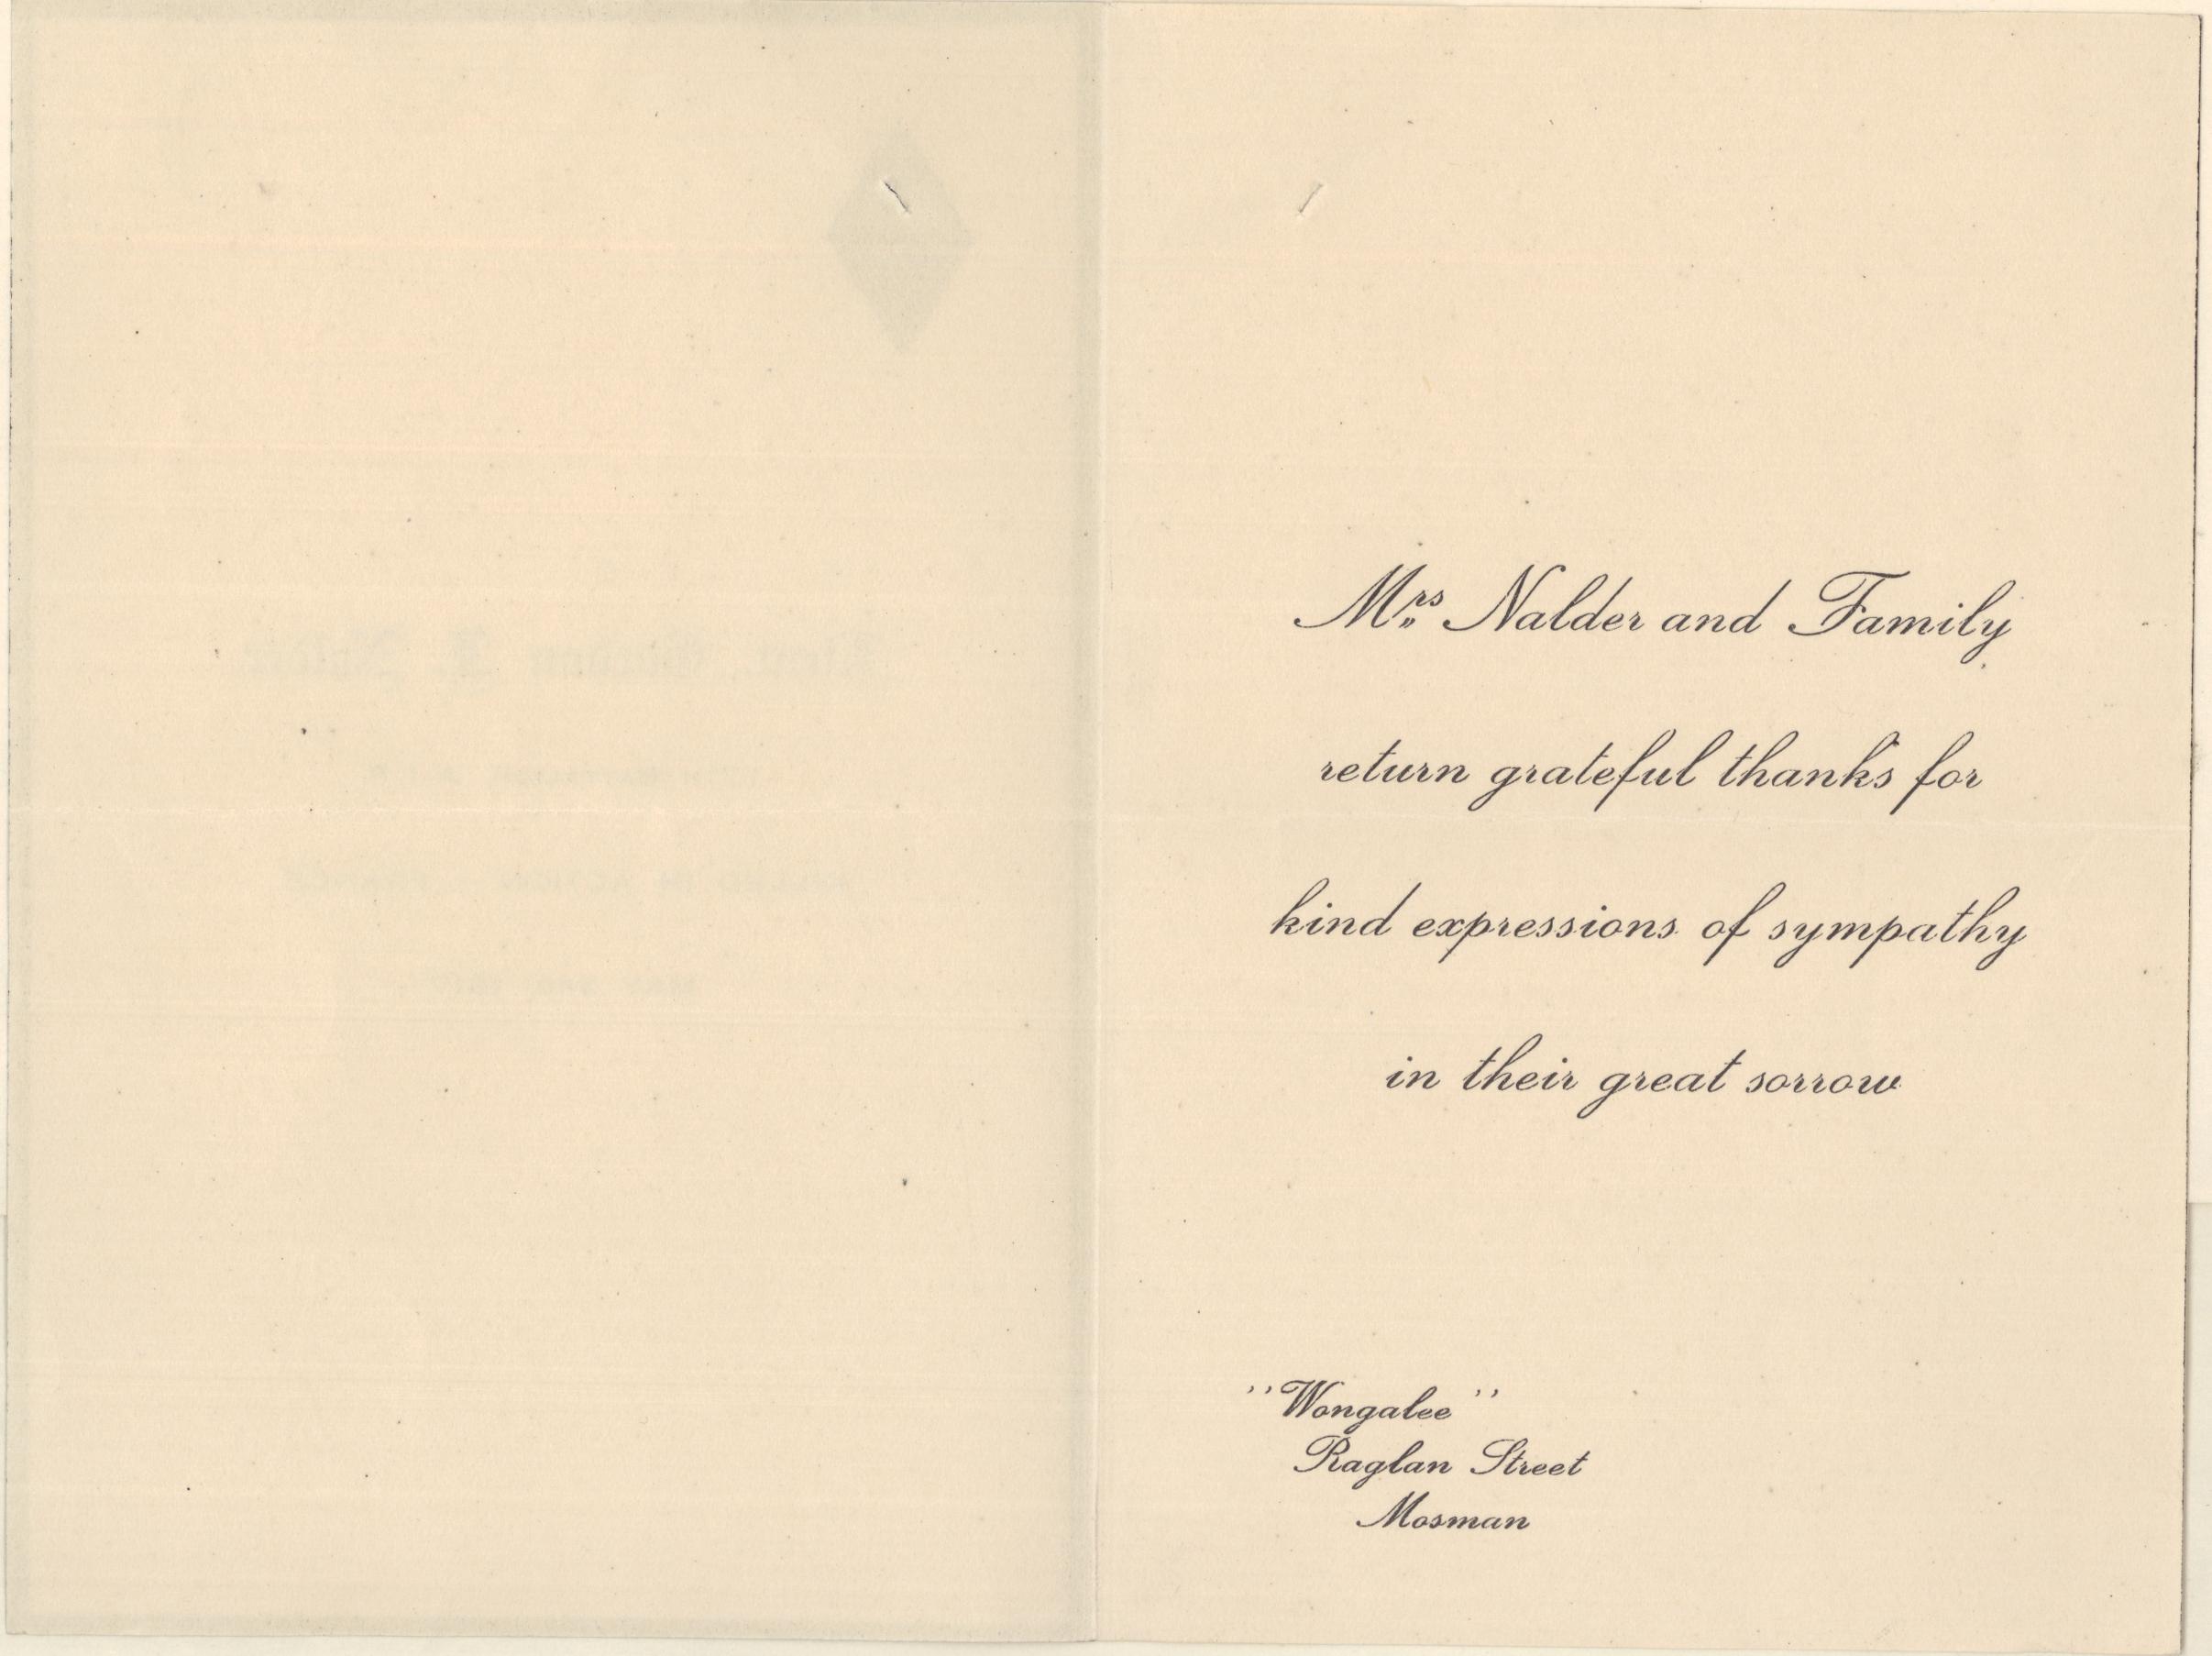 Mrs Nalder and Family
return grateful thanks for
kind expressions of sympathy
in their great sorrow
"Wongalee"
Raglan Street
Mosman